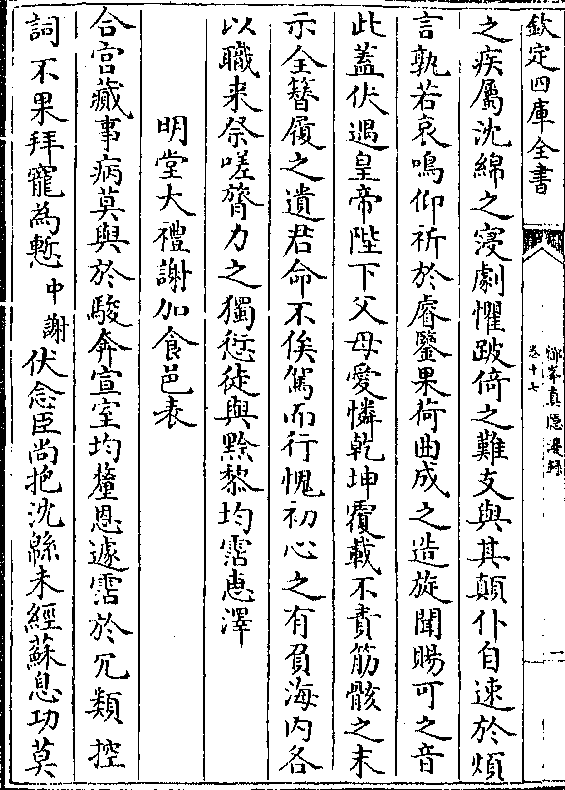 欽定四庫全書
鄮峯真隱漫錄
卷十七
二
之疾屬沈綿之寖劇懼跛倚之難支與其顛仆自速於煩
言孰若哀鳴仰祈於睿鑒果荷曲成之造旋聞賜可之音
此蓋伏遇皇帝陛下父母愛憐乾坤覆載不責筋骸之末
示全簪履之遺君命不俟駕而行愧初心之有負海内各
以職来祭嗟膂力之獨愆徒與黔黎均霑恵澤
明堂大禮謝加食邑表
合宮蕆事病莫與於駿奔宣室均釐恩遽霑於冗類控
詞不果拜寵為慙中謝伏念臣尚抱沈緜未經蘇息功莫